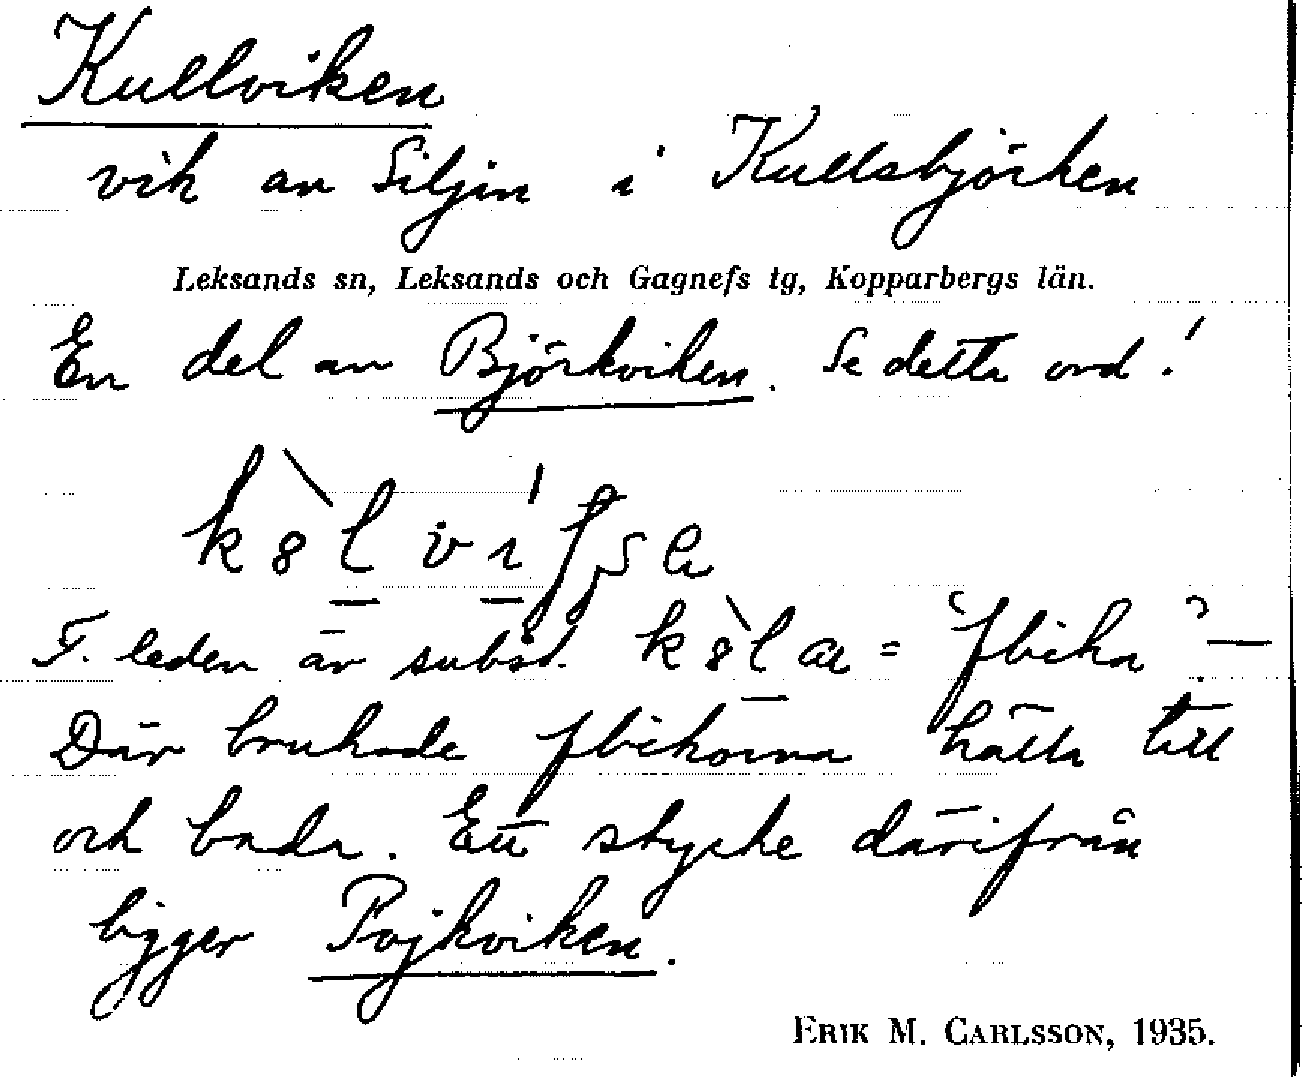 Kullviken
vik av Siljan i Kullsbjörken
Leksands sn, Leksands och Gagnefs tg, Kopparbergs län.
En del av Björkviken. Se detta ord!
F. leden är subst. = "flicka". —
Där brukade flickorna hålla till
och bada. Ett stycke därifrån
ligger Pojkviken.
ERIK M. CARLSSON, 1935.